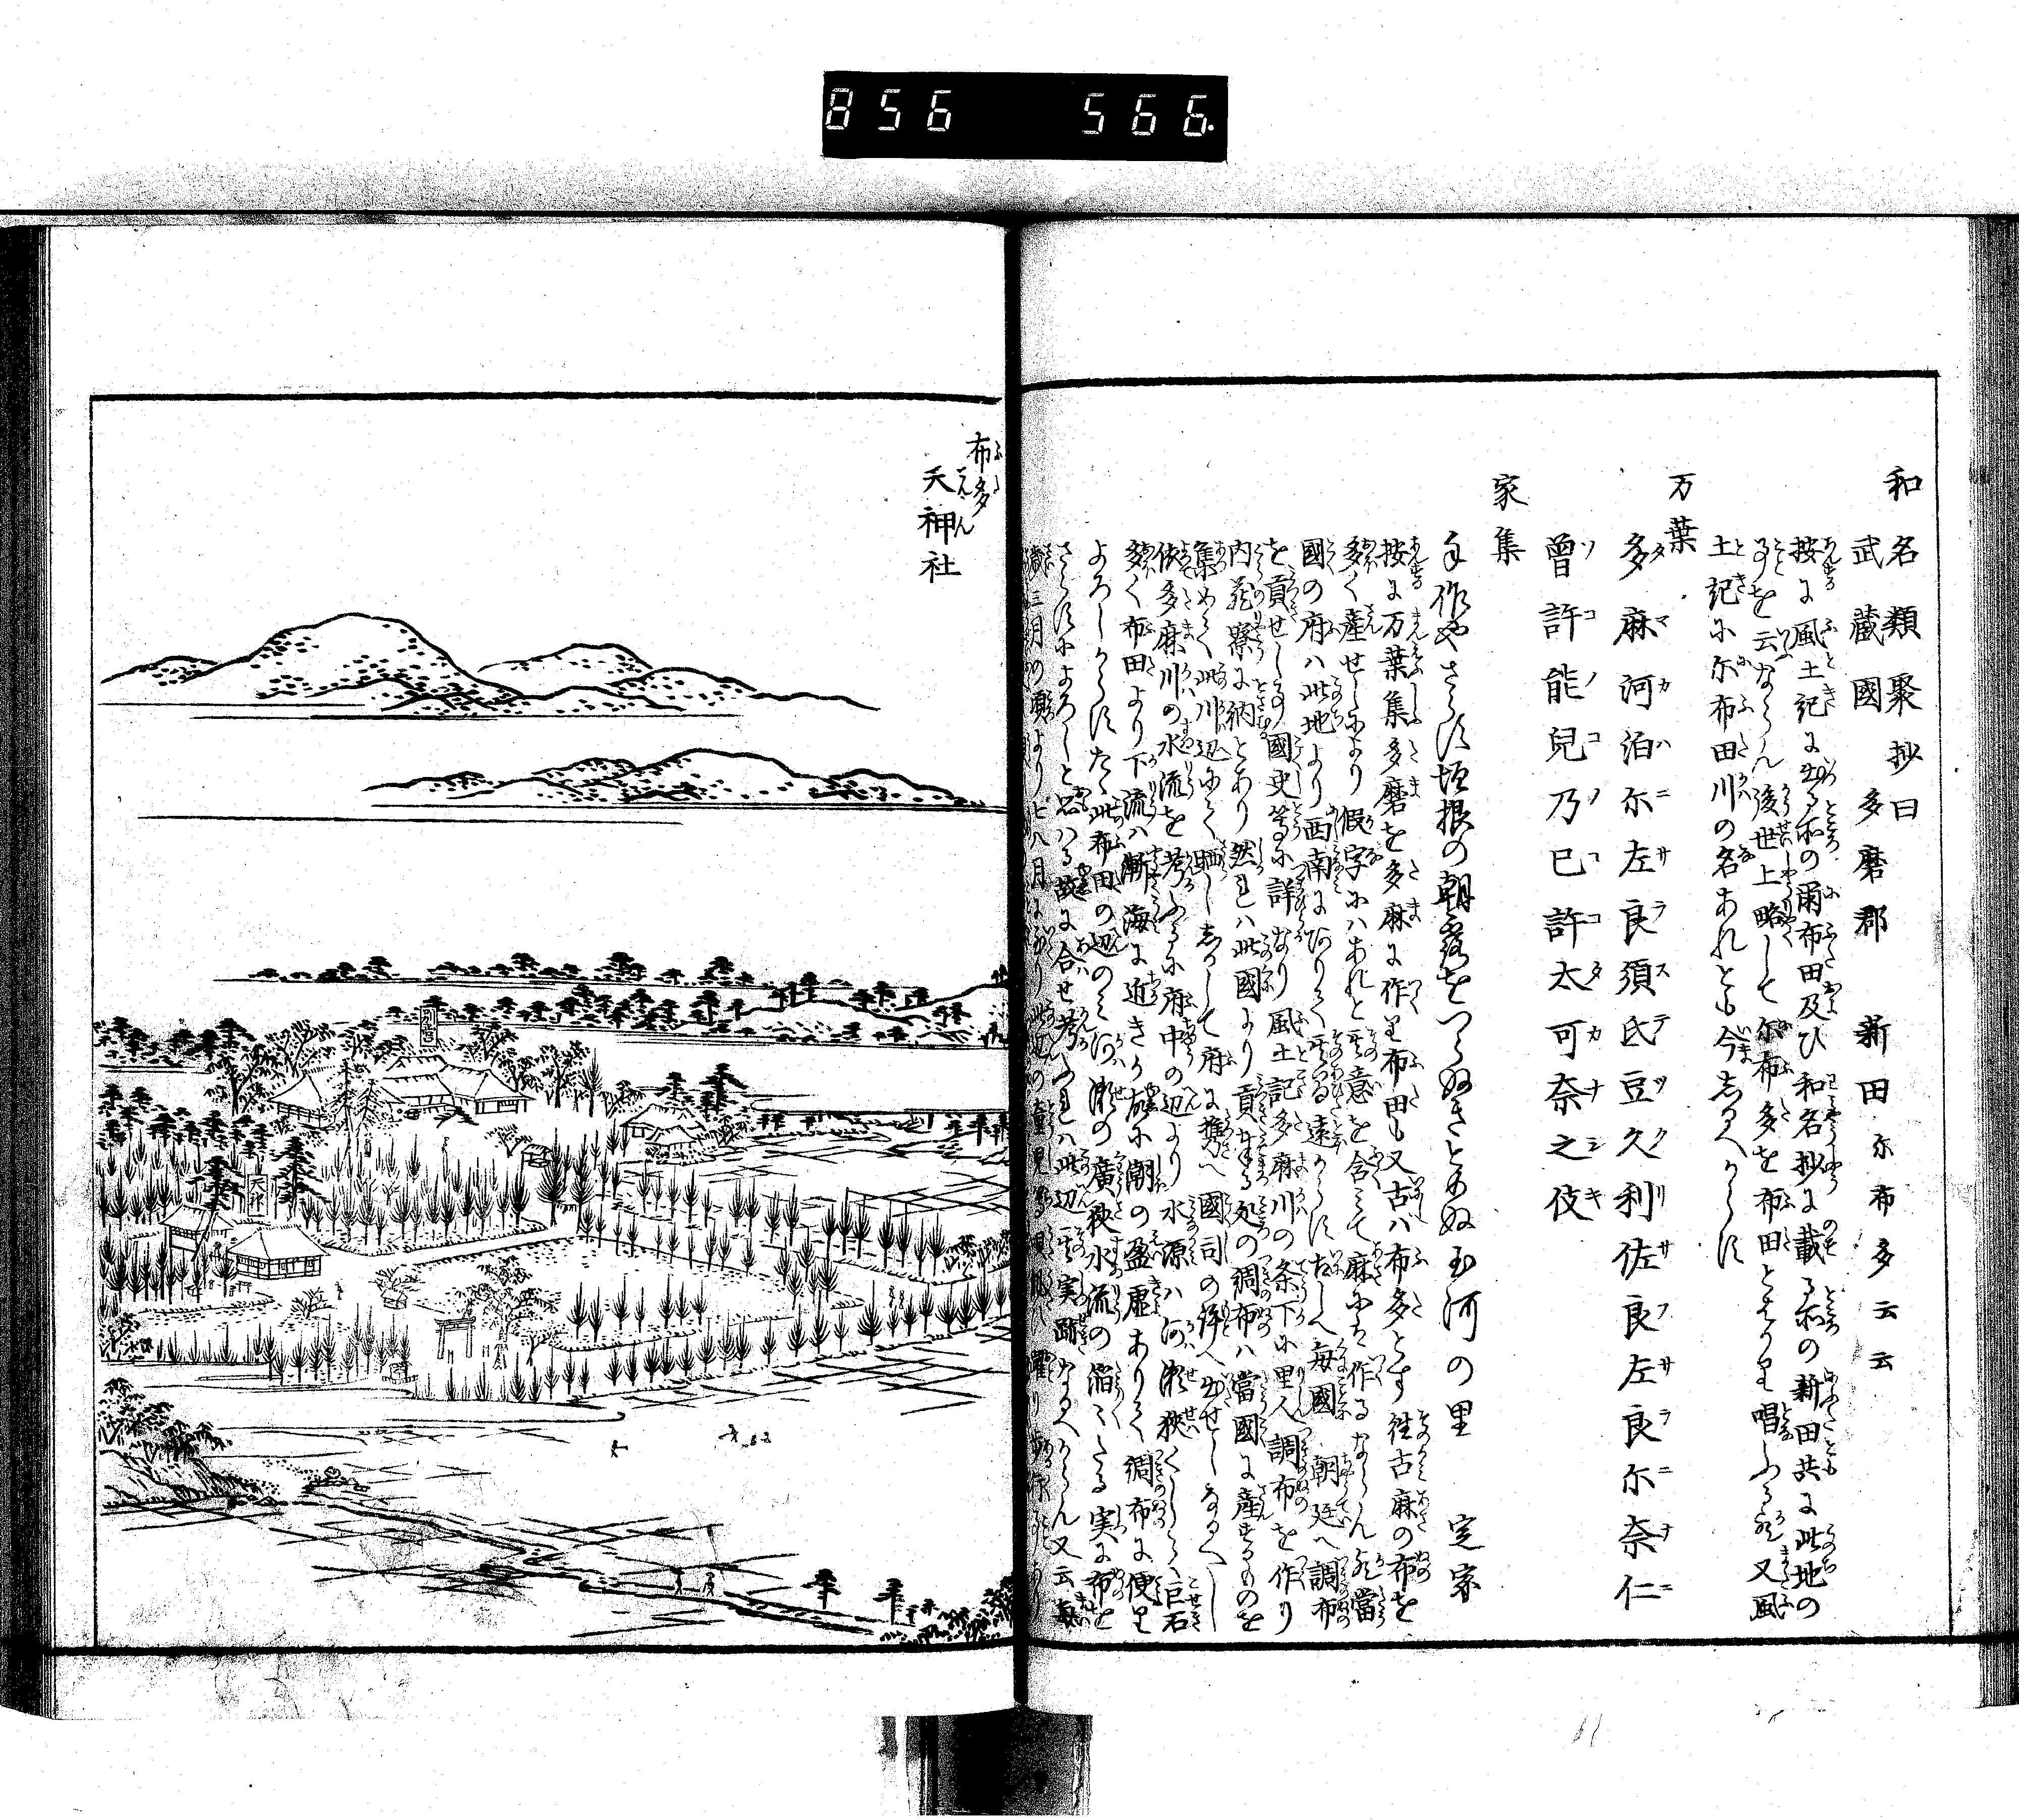 856 566.
和名類聚抄曰
武蔵國多磨郡 新田 尓布多云云
按に風土記に出る所の爾布田及び和名抄に載る所の新田共に此地の
ことを云ならん後世上略して尓布多を布田とはかり唱ふる歟又風
土記に尓布田川の名あれとも今しるへからす
万葉
多麻河泊尓左良須氐豆久利佐良左良尓奈仁
曾許能兒乃已許太可奈之伎
家集
手作やさらす垣根の朝露をつらぬきとめぬ玉河の里 定家
按に万葉集多磨を多麻に作り布田も又古ハ布多とす往古麻の布を
多く産せしより假字にハあれと其意を含ミて麻に作るならん當
國の府ハ此地より西南にありて其間遠からすいにしへ毎國朝廷へ調布
を貢せし事國史等に詳なり風土記多麻川の条下に里人調布を作り
内蔵寮に納とあり然れハ此國より貢する処の調布ハ當國に産するものを
集めて此川辺にて晒ししかして府に携へ國司の許へ出せしなるへし
依多麻川の水流を考ふるに府中の辺より水源ハ河瀬狭くしらへ巨石
多く布田より下流ハ漸海に近きか故に潮の盈虚ありて調布に便り
よろしからすたゝ此布田の辺のミ河瀬の廣狭水流の淊ミたる実に布を
さらすによろしと思ハる故に合せ考ふれハ此辺其実跡なるへからん又云
歳三月の頃より七八月に至り此辺の童見
布多
天神社
別當
天神